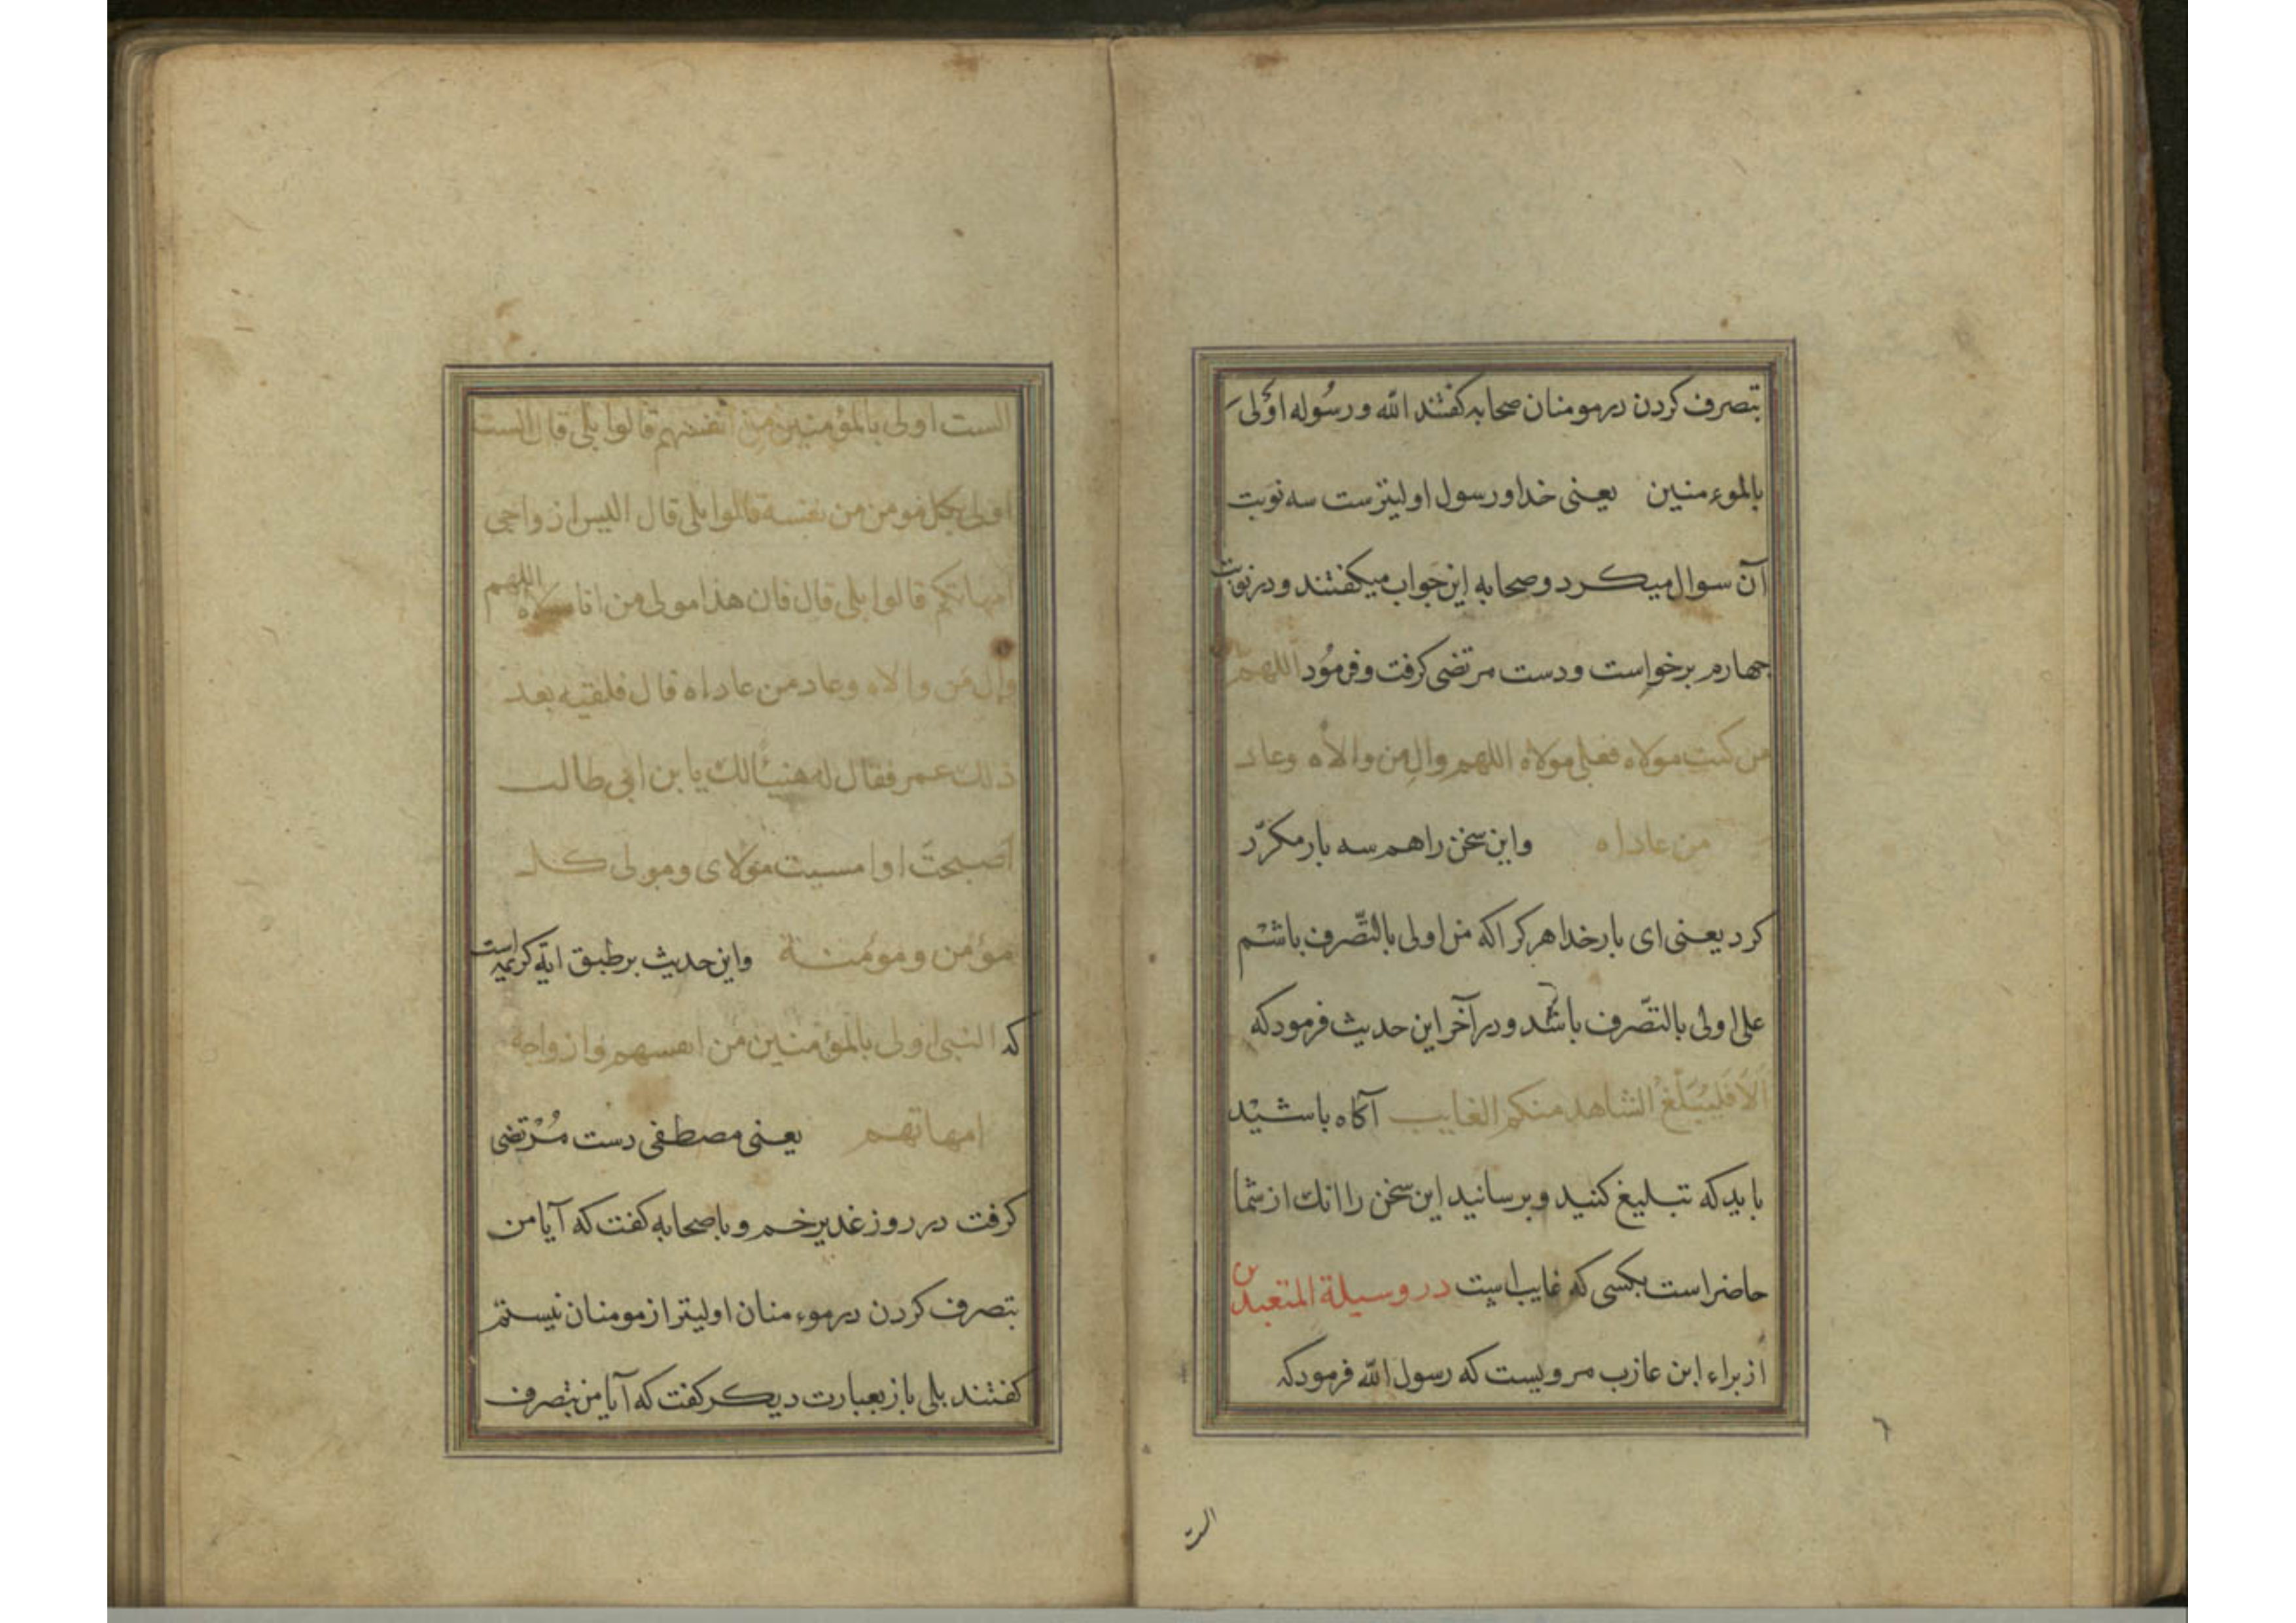 بتصرف کردن در مومنان صحابه کفتند الله و رسُوله اوْلی
بالموءمنین یعنی خدا و رسول اولیترست سه نوبت
آن سوال میکرد و صحابه این جواب میکفتند و در نوبت
چهارم برخواست و دست مرتضی کرفت و فرمُود اللهم
من کنت مولاه فعلی مولاه اللهم والِ من والاه وعاد
من عاداه واین سخن را هم سه بار مکرّر
کرد یعنی ای بار خدا هر کرا که من اولی بالتّصرف باشم
علی اولی بالتّصرف باشد و در آخر این حدیث فرمود که
اَلاَ فَلیُبَلّغْ الشاهد منکم الغایب آکاه باشید
باید که تبلیغ کنید و برسانید این سخن را انك از شما
حاضر است بکسی که غایب است در وسیلة المتعبدین
از براء ابن عازب مرویست که رسول الله فرمود که
٦
الست
الست اولی بالمؤمنین من انفسهم قالوا بلی قال الست
اولی بکل مومن من نفسه قالوا بلی قال الیس ازواجی
امهاتکم قالوا بلی قال فان هذا مولی من انا مولاه اللهم
وال من والاه وعاد من عاداه قال فلقیه بعد
ذلك عمر فقال له هنیئالك یابن ابی طالب
اصبحت او امسیت مولای ومولی کل
مؤمن ومؤمنة واین حدیث بر طبق ایة کریمه است
که النبی اولی بالمؤمنین من انفسهم وازواجه
امهاتهم یعنی مصطفی دست مُرْتضی
کرفت در روز غدیر خم و با صحابه کفت که آیا من
بتصرف کردن در موءمنان اولیتر از مومنان نیستم
کفتند بلی باز بعبارت دیکر کفت که آیا من بتصرف